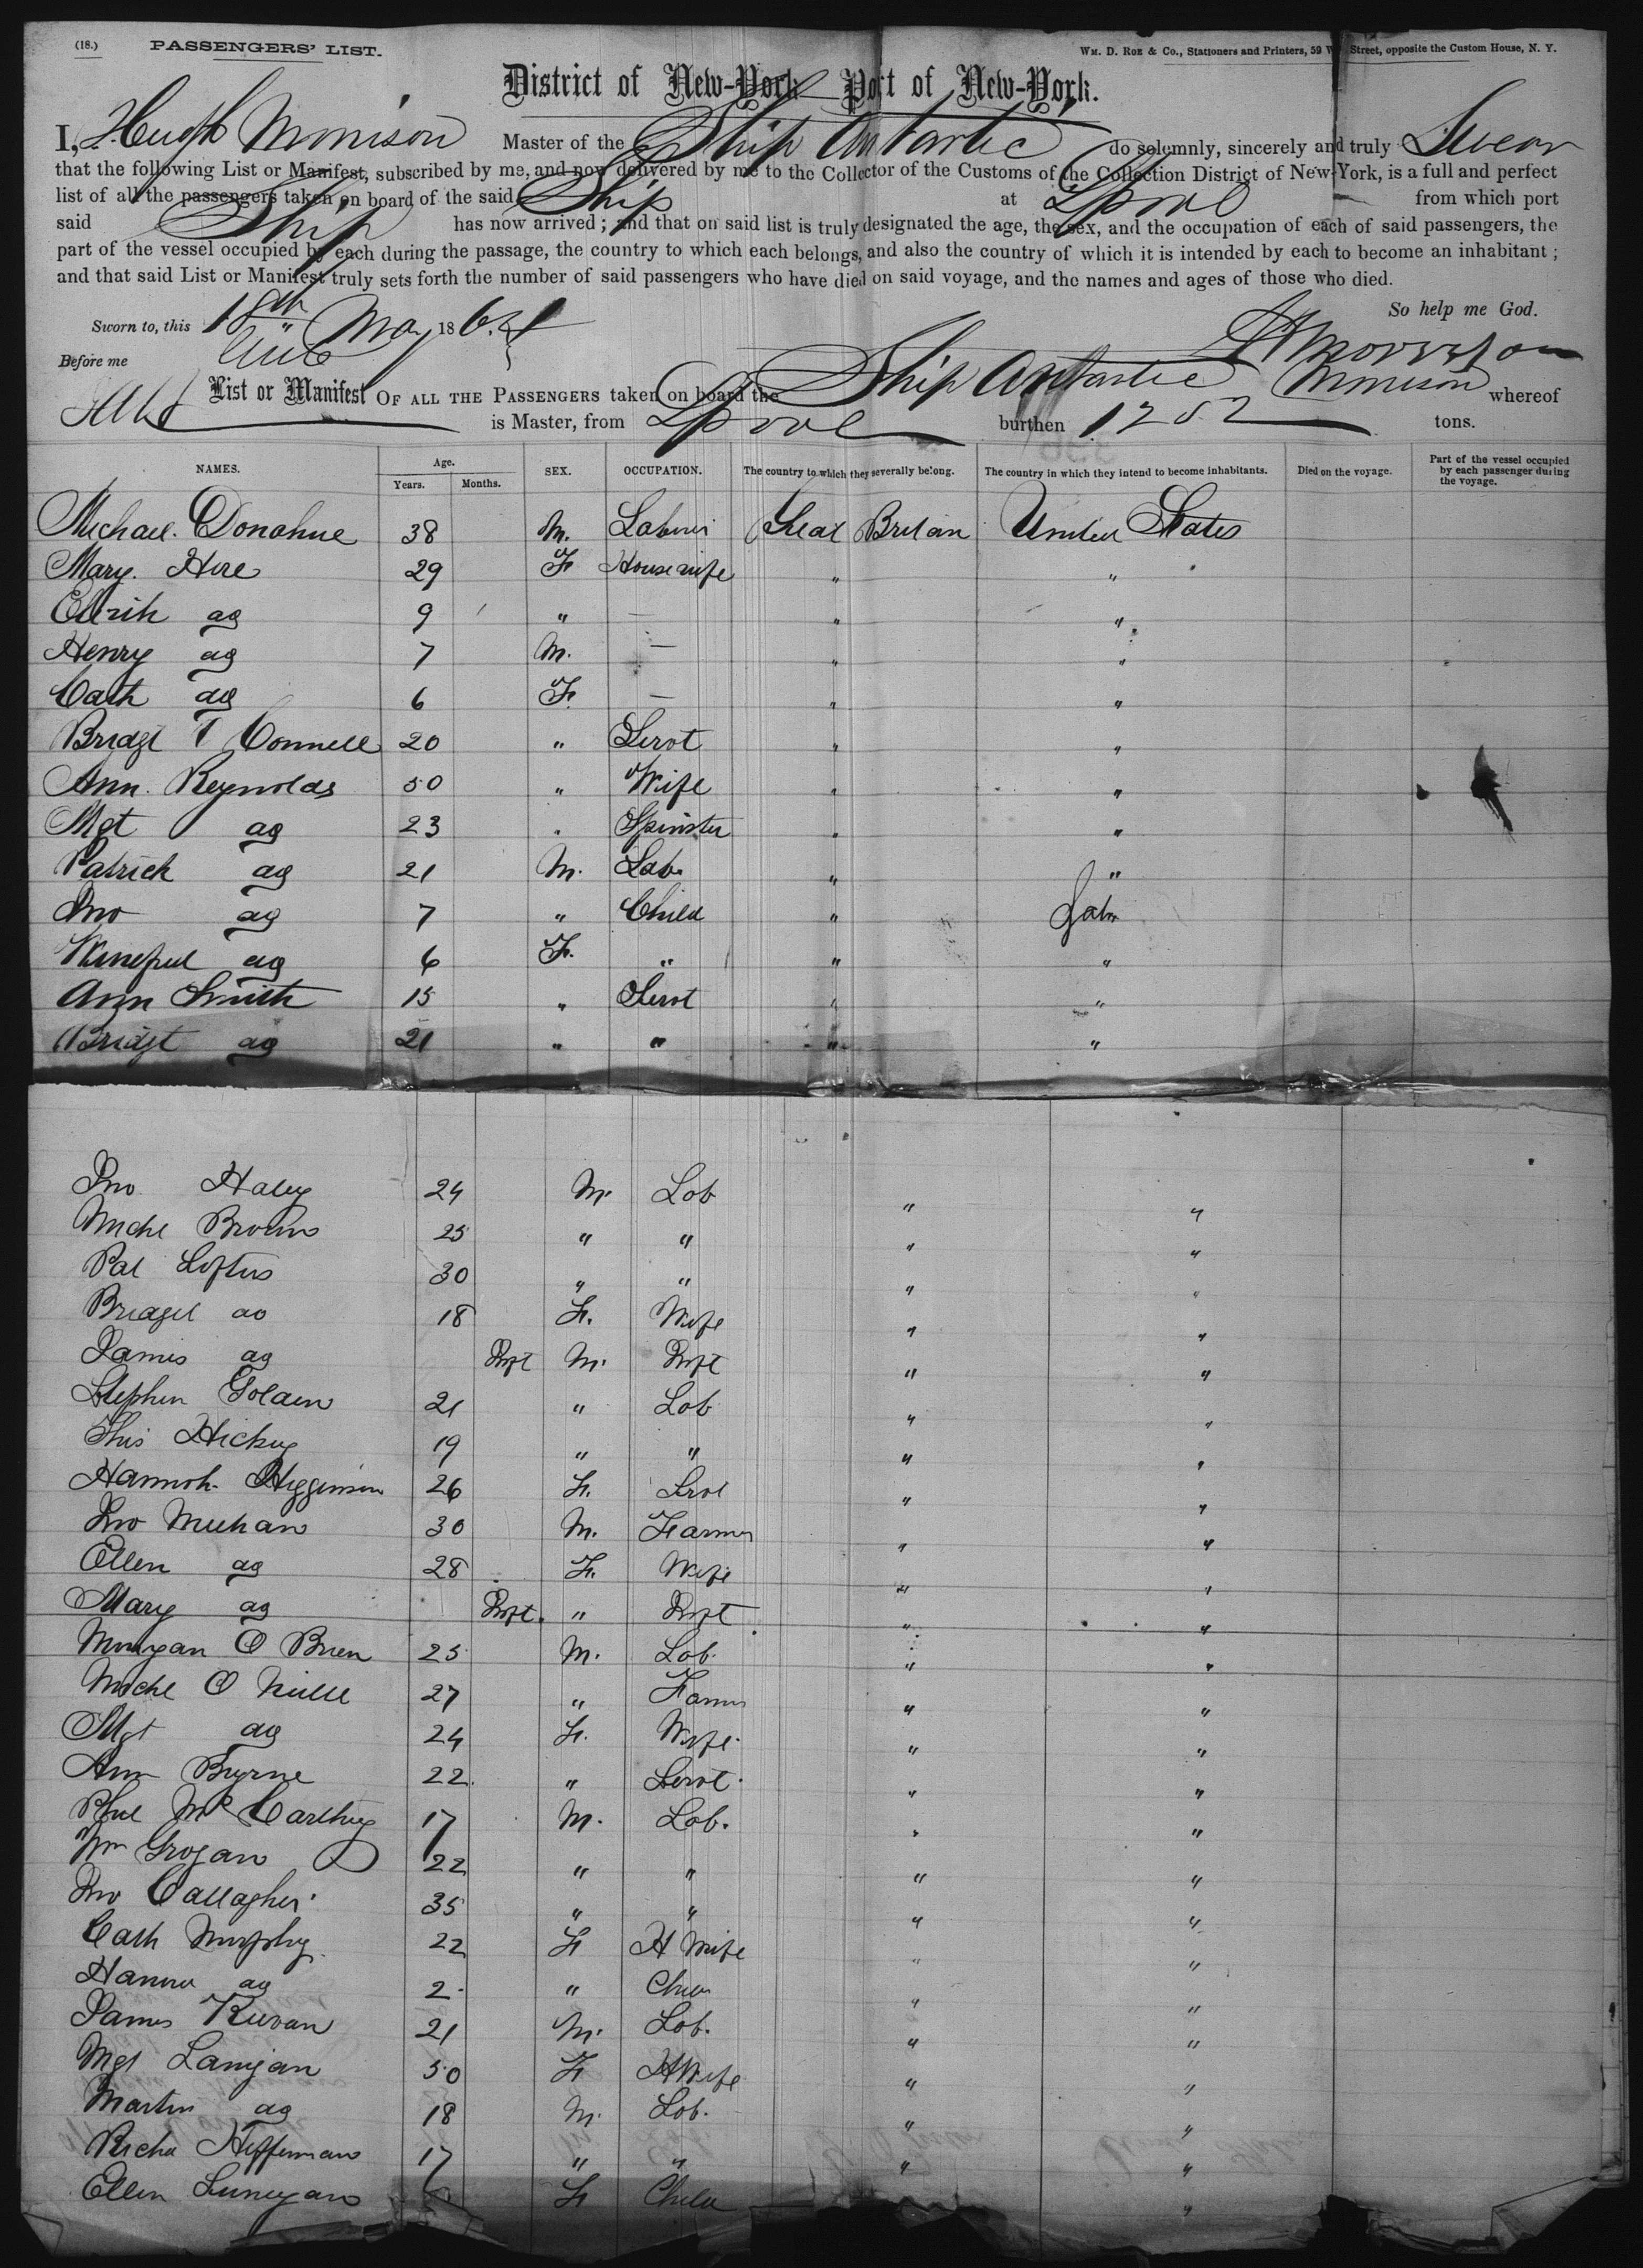 (18.) PASSENGERS' LIST. WM. D. ROE & Co., Stationers and Printers, 59 Street, opposite the Custom House, N. Y.
District of New-York Port of New-York.
I, Hugh Morrison Master of the Ship Antartic do solemnly, sincerely and truly Swear
that the following List or Manifest, subscribed by me, and now delivered by me to the Collector of the Customs of the Collection District of New-York, is a full and perfect
list of all the passengers taken on board of the said Ship at Lpool from which port
said Ship has now arrived; and that on said list is truly designated the age, the sex, and the occupation of each of said passengers, the
part of the vessel occupied by each during the passage, the country to which each belongs, and also the country of which it is intended by each to become an inhabitant;
and that said List or Manifest truly sets forth the number of said passengers who have died on said voyage, and the names and ages of those who died.
So help me God.
Sworn to, this 18th May 186
Before me H Morrison
List or Manifest OF ALL THE PASSENGERS taken on board the Ship Antartic Morrison whereof
is Master, from Lpool burthen 1252 tons.
NAMES. Age. Years. Months. SEX. OCCUPATION. The country to which they severally belong. The country in which they intend to become inhabitants. Died on the voyage. Part of the vessel occupied by each passenger during the voyage.
Michael Donahue 38 M. Laborer Great Britain United States
Mary Hore 29 F Housewife " "
9 " — " "
Henry do 7 M. — " "
Cath do 6 F. — " "
Bridgt Connell 20 " Servt " "
Ann Reynolds 50 " Wife " "
Mgt do 23 " Spinster " "
Patrick do 21 M. Lab. " "
Jno do 7 " Child "
do 6 F. " " "
Ann Smith 15 " Servt " "
Bridgt do 21 " " " "
Jno Haley 24 M. Lab " "
Michl Brown 25 " " " "
Pat Loftus 30 " " " "
Bridget do 18 F. Wife " "
James do Inft M. Inft " "
Stephen Golden 21 " Lab " "
Thos Hickey 19 " " " "
Hannah Higginson 26 F. Servt " "
Jno Meehan 30 M. Farmer " "
Ellen do 28 F. Wife " "
Mary do Inft. " Inft " "
Morgan O Brien 25 M. Lab. " "
Michl O Neill 27 " Farmer " "
Mgt do 24 F. Wife " "
Ann Byrne 22 " Servt " "
Phil McCarthy 17 M. Lab. " "
Wm Grogan 22 " " " "
Jno Callagher 35 " " " "
Cath Murphy 22 F H Wife " "
Hanna do 2 " Child " "
James Kirvan 21 M. Lab. " "
Mgt Lanigan 50 F H Wife " "
Martin do 18 M. Lab. " "
Richd Heffernan 17 " " " "
Ellen 6 F Child " "